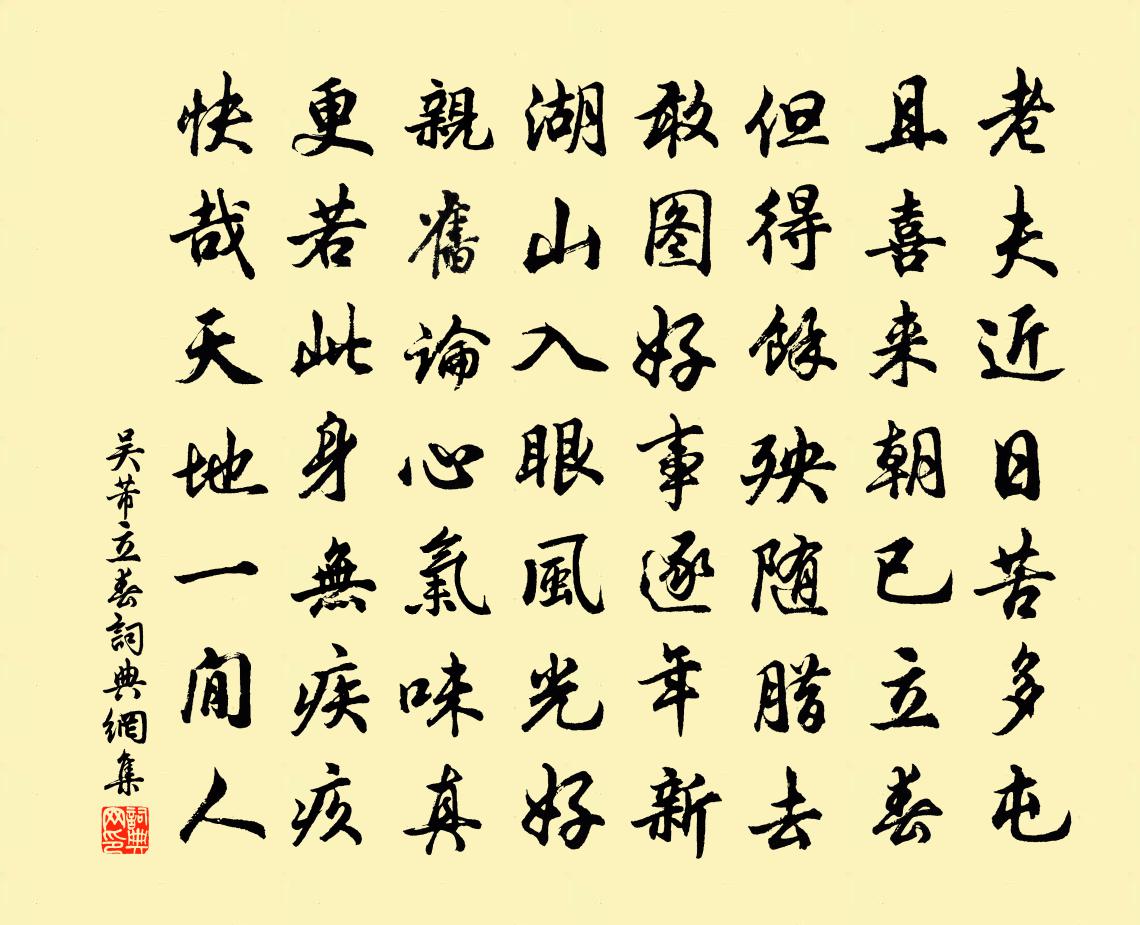 老夫近日苦多屯
且喜来朝已立春
但得餘殃随腊去
敢图好事逐年新
湖山入眼風光好
親舊論心氣味真
更若此身無疾疢
快哉天地一閒人
吴芾立春詞典網集
詞典网印